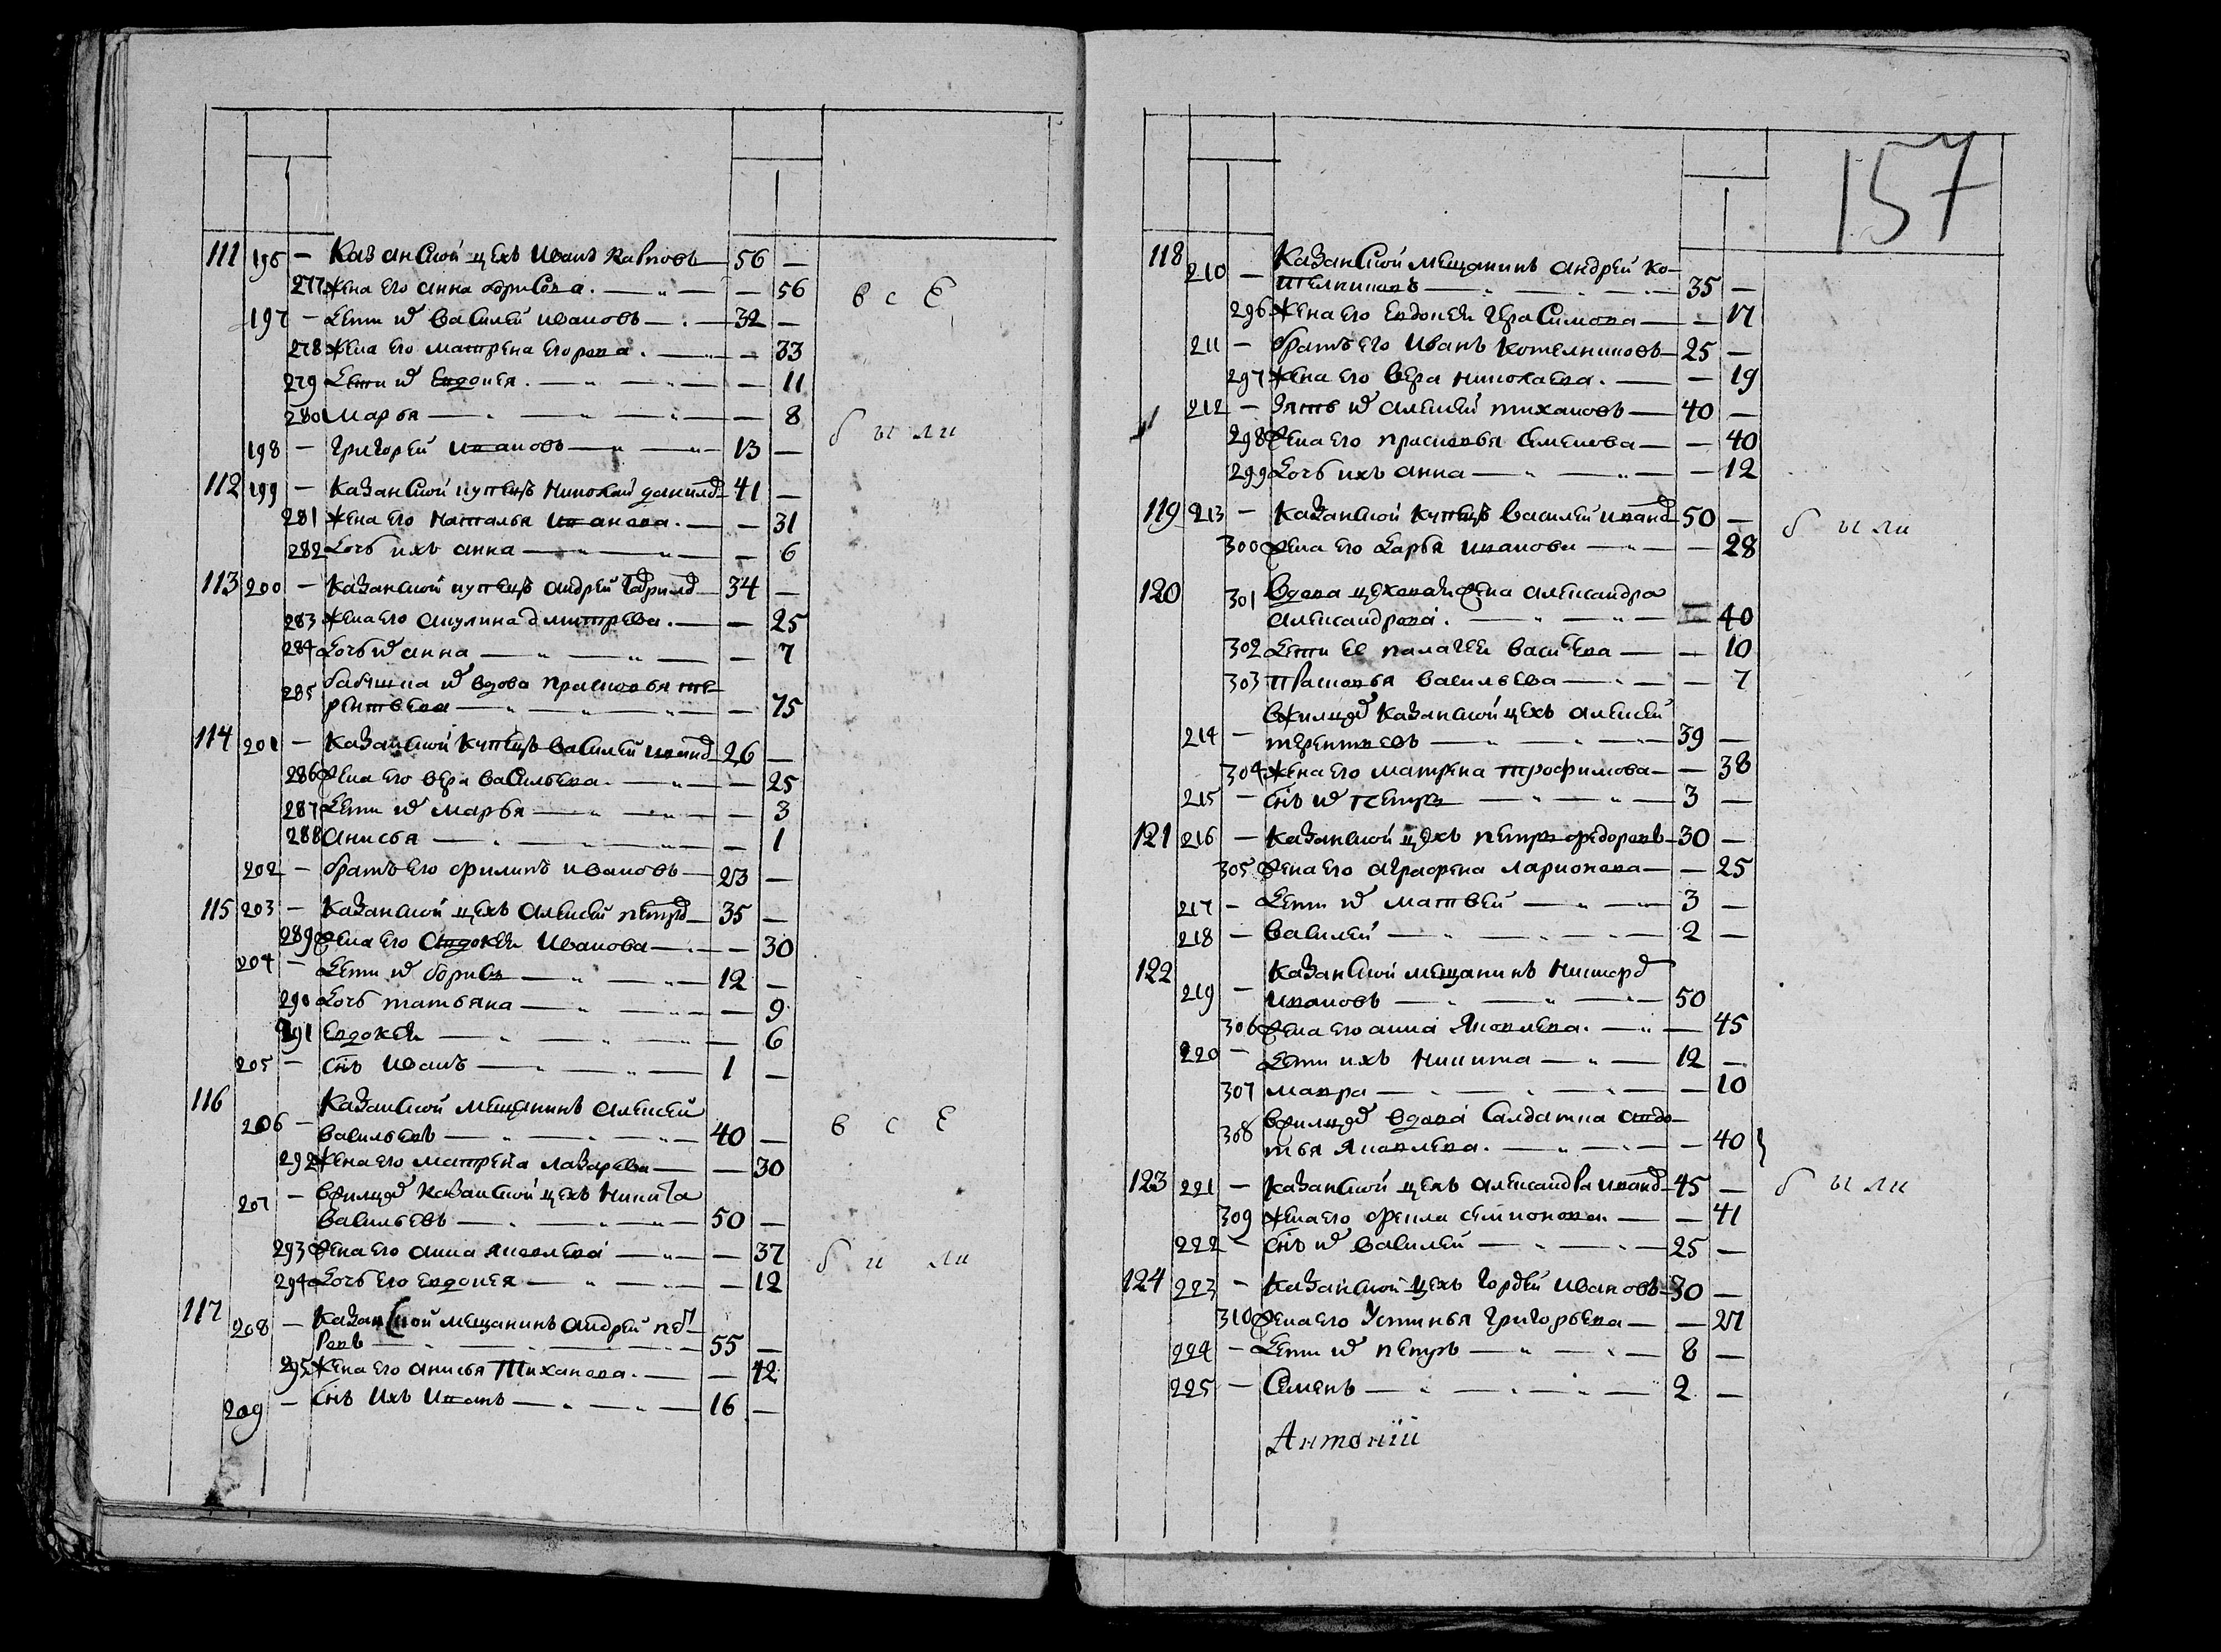 111 196 — Казанской цехъ Иванъ Карповъ — 56 —
277 жена его анна борисова — — 56
все
197 — Дети их василей ивановъ — 32 —
278 жена его матрена егорова — — 33
279 Дети их Евдокея — — 11
280 Марья — — 8
были
198 — григорей ивановъ — 13 —
112 199 — Казанской купецъ николай данилов 41 —
281 жена его наталья иванова — — 31
282 дочь ихъ анна — — 6
113 200 — Казанской купецъ андрей гаврилов 34 —
283 жена его акулина дмитрева — — 25
284 дочь их анна — — 7
285 бабушка их вдова прасковья те-
рентьева — — 75
114 201 — Казанской купецъ василей иванов 26 —
286 жена его вера васильева — — 25
287 Дети их марья — — 3
288 Анисья — — 1
202 — братъ его филипъ ивановъ — 23 —
115 203 — Казанской цехъ алексей петров 35 —
289 жена его авдокея иванова — — 30
204 — Дети их борисъ — 12 —
290 дочь татьяна — — 9
291 Евдокея — — 6
205 — снъ иванъ — 1 —
116 Казанской мещанинъ алексей
206 — васильевъ — 40 —
все
292 жена его матрена лазарева — — 30
207 — Казанской цехъ никита
васильевъ — 50 —
293 жена его анна яковлева — — 37
были
294 дочь его евдокея — — 12
117 208 — Казанской мещанинъ андрей пет-
ровъ — 55 —
295 жена его анисья тиханова — — 42
209 — снъ ихъ иванъ — 16 —
157
118 210 — Казанской мещанинъ андрей ко-
телниковъ — 35 —
296 жена его евдокея герасимова — — 17
211 — братъ его иванъ котелниковъ — 25 —
297 жена его вера николаева — — 19
212 — зять их алексей тихановъ — 40 —
298 жена его прасковья семенова — — 40
299 дочь ихъ анна — — 12
119 213 — Казанской купецъ василей иванов 50 —
были
300 жена его дарья иванова — — 28
120 301 Вдова цеховая жена александра
александрова — 40
302 Дети ее палагея васильева — — 10
303 прасковья васильева — — 7
Казанской цехъ алексей
214 — терентьевъ — 39 —
304 жена его матрена трофимова — — 38
215 — снъ их петръ — 3 —
121 216 — Казанской цехъ петръ федоровъ — 30 —
305 жена его аграфена ларионова — — 25
217 — Дети их матвей — 3 —
218 — василей — 2 —
122 Казанской мещанинъ
219 — ивановъ — 50
306 жена его анна яковлева — — 45
220 — Дети ихъ никита — 12 —
307 мавра — — 10
308 вдова салдатка авдо-
тья яковлева — — 40
123 221 — Казанской цехъ александра иванов 45 —
были
309 жена его фекла семионова — — 41
222 — снъ их василей — 25 —
124 223 — Казанской цехъ гордей ивановъ 30 —
310 жена его устинья григорьева — — 27
224 — Дети их петръ — 8 —
225 — Семенъ — 2 —
Антоний